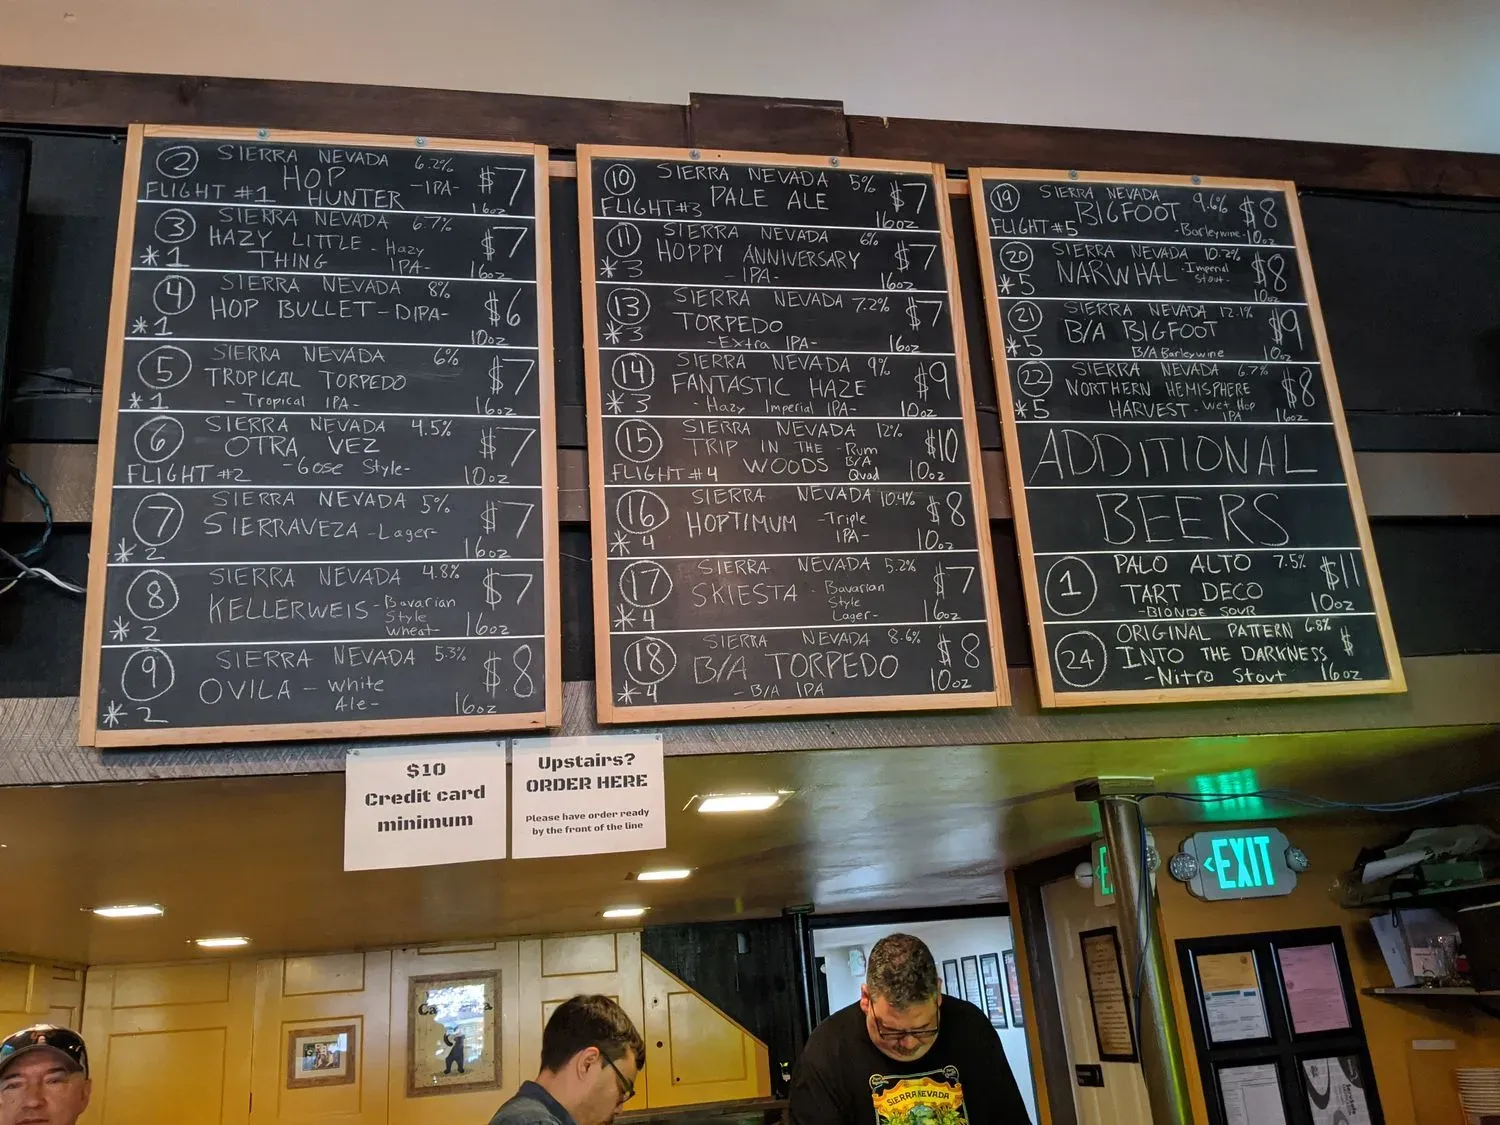 2 SIERRA NEVADA 6.2%
HOP -IPA- $7
FLIGHT #1 HUNTER 16oz
3 SIERRA NEVADA 6.7%
HAZY LITTLE - Hazy $7
*1 THING IPA- 16oz
4 SIERRA NEVADA 8%
HOP BULLET -DIPA- $6
*1 10oz
5 SIERRA NEVADA 6%
TROPICAL TORPEDO $7
*1 -Tropical IPA- 16oz
6 SIERRA NEVADA 4.5%
OTRA VEZ $7
FLIGHT #2 -Gose Style- 10oz
7 SIERRA NEVADA 5%
SIERRAVEZA -Lager- $7
*2 16oz
8 SIERRA NEVADA 4.8% $7
KELLERWEIS -Bavarian
Style
*2 Wheat- 16oz
9 SIERRA NEVADA 5.3% $8
OVILA - White
*2 Ale- 16oz
10 SIERRA NEVADA 5% $7
FLIGHT #3 PALE ALE 16oz
11 SIERRA NEVADA 6% $7
HOPPY ANNIVERSARY
*3 -IPA- 16oz
13 SIERRA NEVADA 7.2% $7
TORPEDO
*3 -Extra IPA- 16oz
14 SIERRA NEVADA 9% $9
FANTASTIC HAZE
*3 -Hazy Imperial IPA- 10oz
15 SIERRA NEVADA 12% $10
TRIP IN THE -Rum
FLIGHT #4 WOODS B/A
Quad 10oz
16 SIERRA NEVADA 10.4% $8
HOPTIMUM -Triple
*4 IPA- 10oz
17 SIERRA NEVADA 5.2% $7
SKIESTA - Bavarian
Style
*4 Lager- 16oz
18 SIERRA NEVADA 8.6% $8
B/A TORPEDO
*4 -B/A IPA 10oz
19 SIERRA NEVADA 9.6% $8
BIGFOOT
FLIGHT #5 -Barleywine- 10oz
20 SIERRA NEVADA 10.2% $8
NARWHAL -Imperial
*5 Stout- 10oz
21 SIERRA NEVADA 12.1% $9
B/A BIGFOOT
*5 B/A Barleywine 10oz
22 SIERRA NEVADA 6.7% $8
NORTHERN HEMISPHERE
*5 HARVEST -Wet Hop
IPA 16oz
ADDITIONAL
BEERS
1 PALO ALTO 7.5% $11
TART DECO
-BLONDE SOUR 10oz
24 ORIGINAL PATTERN 6.8% $
INTO THE DARKNESS
-Nitro Stout- 16oz
$10
Credit card
minimum
Upstairs?
ORDER HERE
Please have order ready
by the front of the line
EXIT
E
SIERRA NEVADA